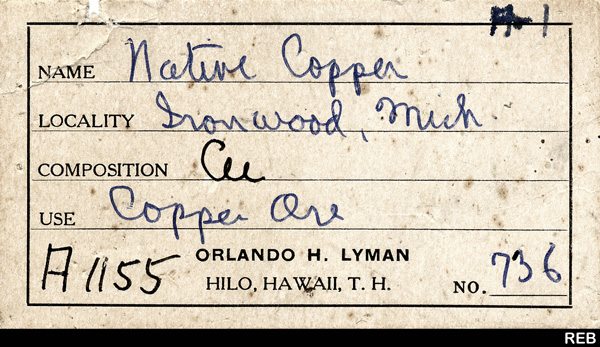 A-1
NAME Native Copper
LOCALITY Ironwood, Mich.
COMPOSITION Cu
USE Copper Ore
A1155
ORLANDO H. LYMAN
HILO, HAWAII, T. H.
NO. 736
REB